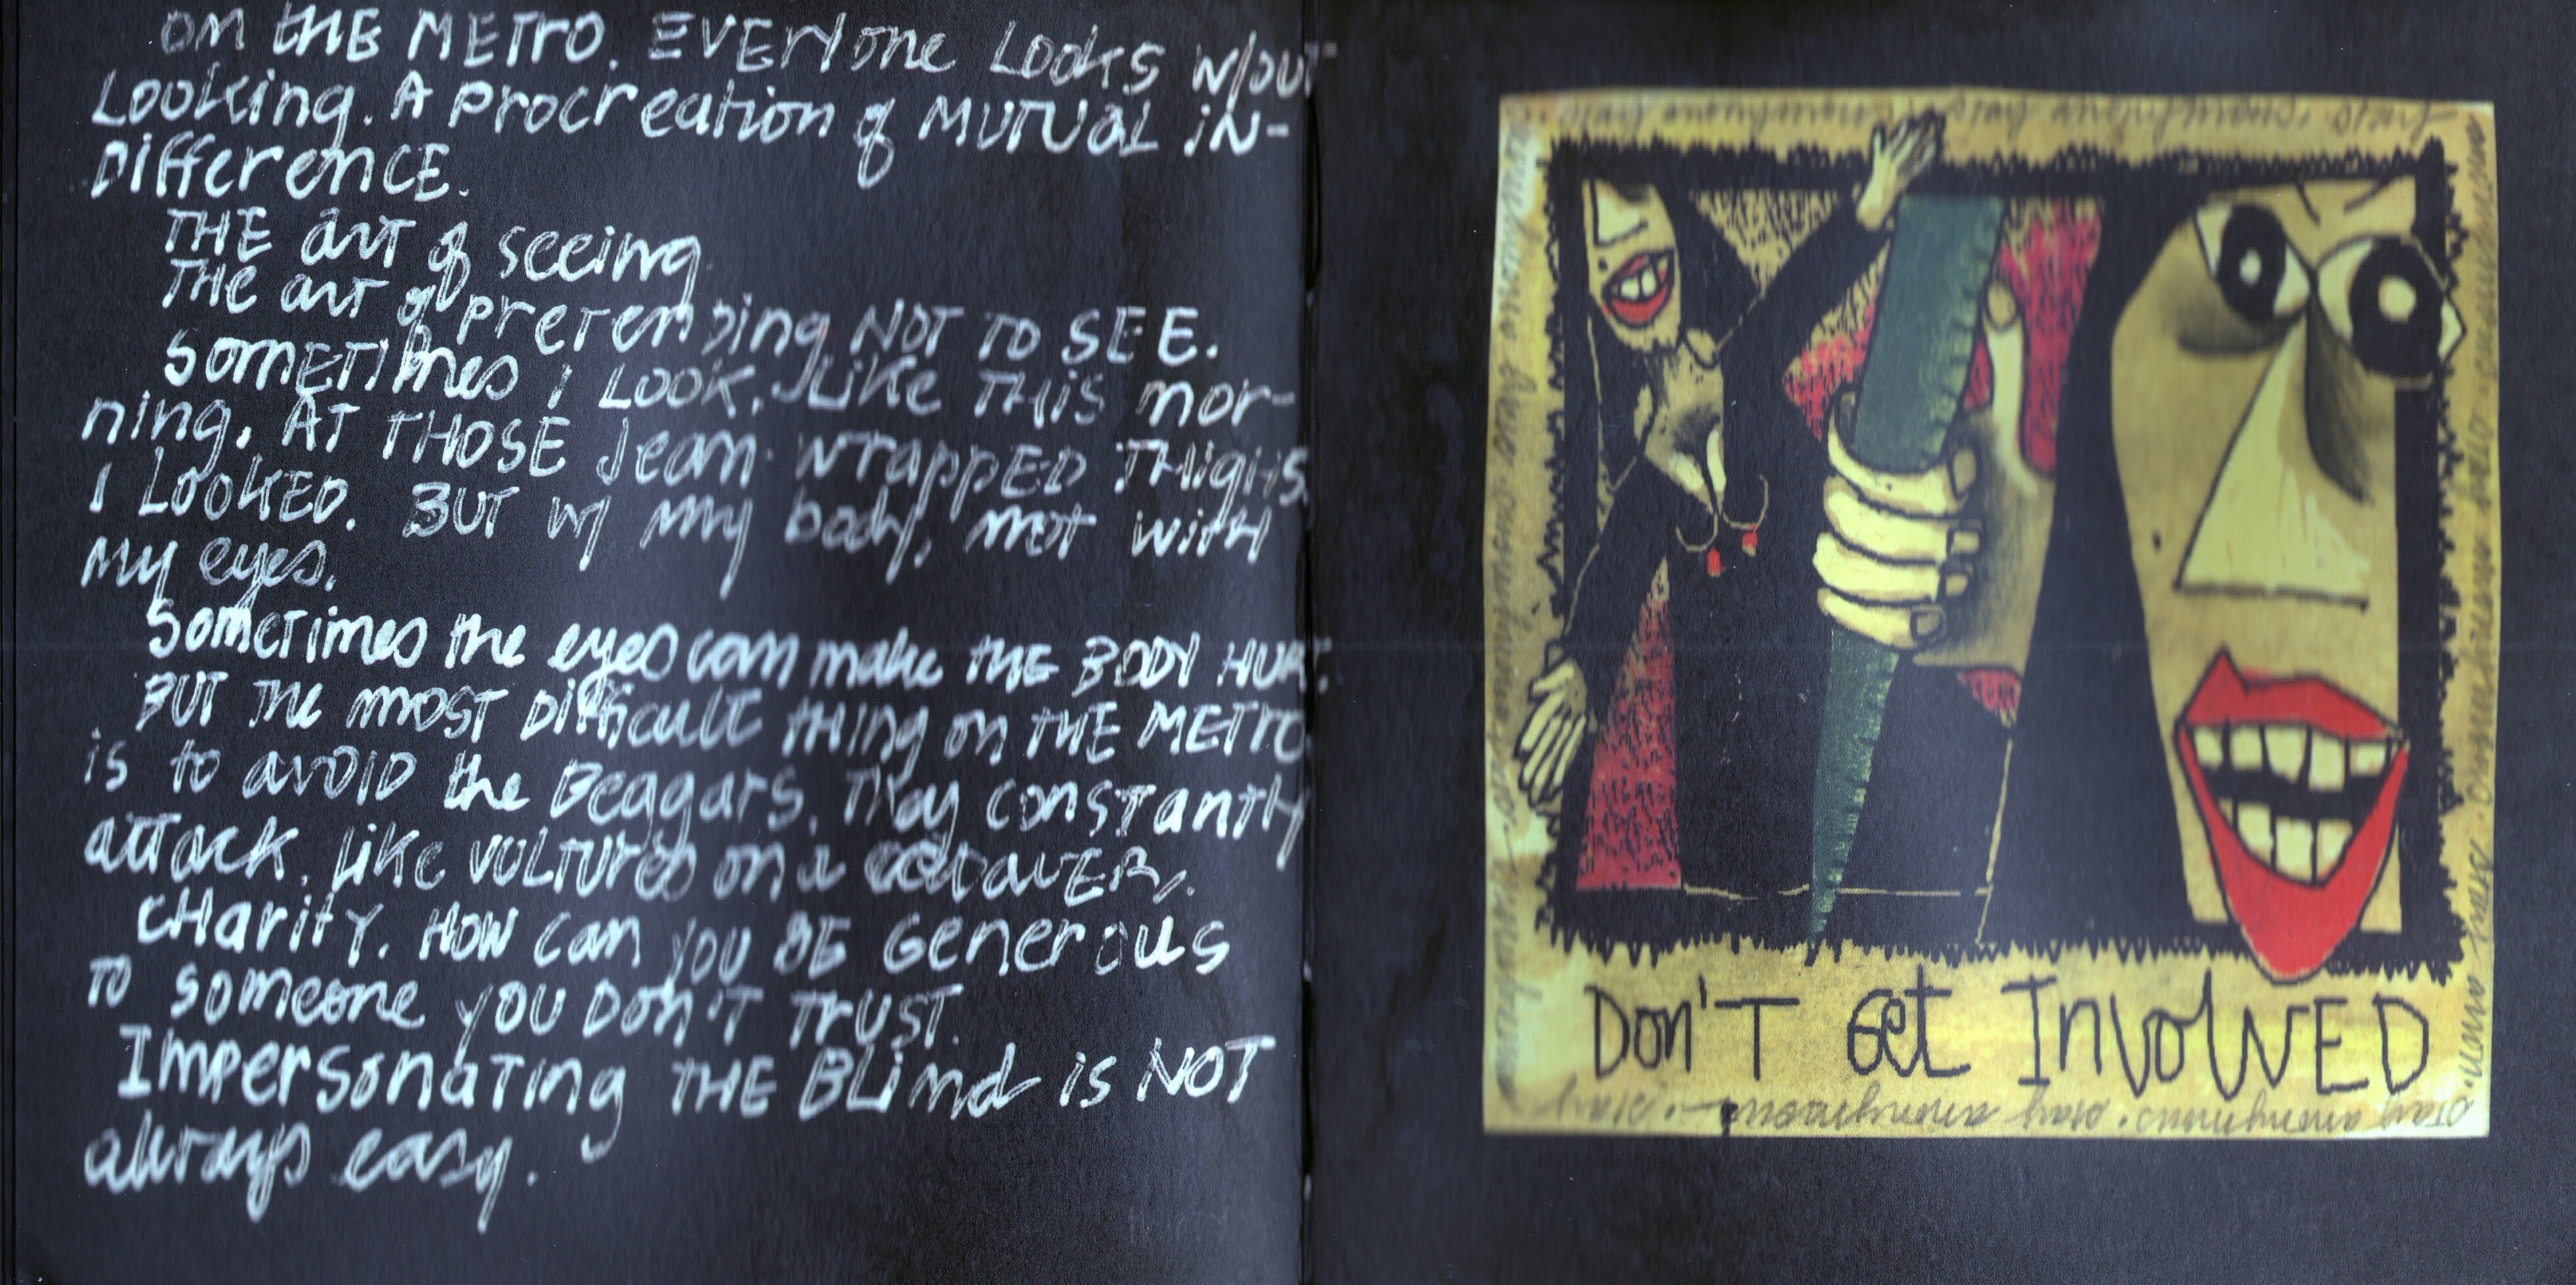 ON THE METRO. EVEryone Looks w/out
Looking. A procreation of MUTUAL iN-
Difference.
THE art of seeing
THE art of pretending NOT TO SEE.
SOMETIMES i LOOK. Like THiS mor-
ning. AT THOSE jean-wrapped THighs.
I LOOKED. BUT w/ my body, not with
my eyes.
Sometimes the eyes can make THE BODY HURT.
BUT The most Difficult THing on THE METRO
is to avoid the Beggars. They constantly
attack. Like vultures on a cadaver.
CHarity. How can you BE Generous
TO someone you DON'T TRUST.
Impersonating THE BLind is NOT
always easy.
DON'T Get InvolvED
stay anonymous. stay anonymous. stay